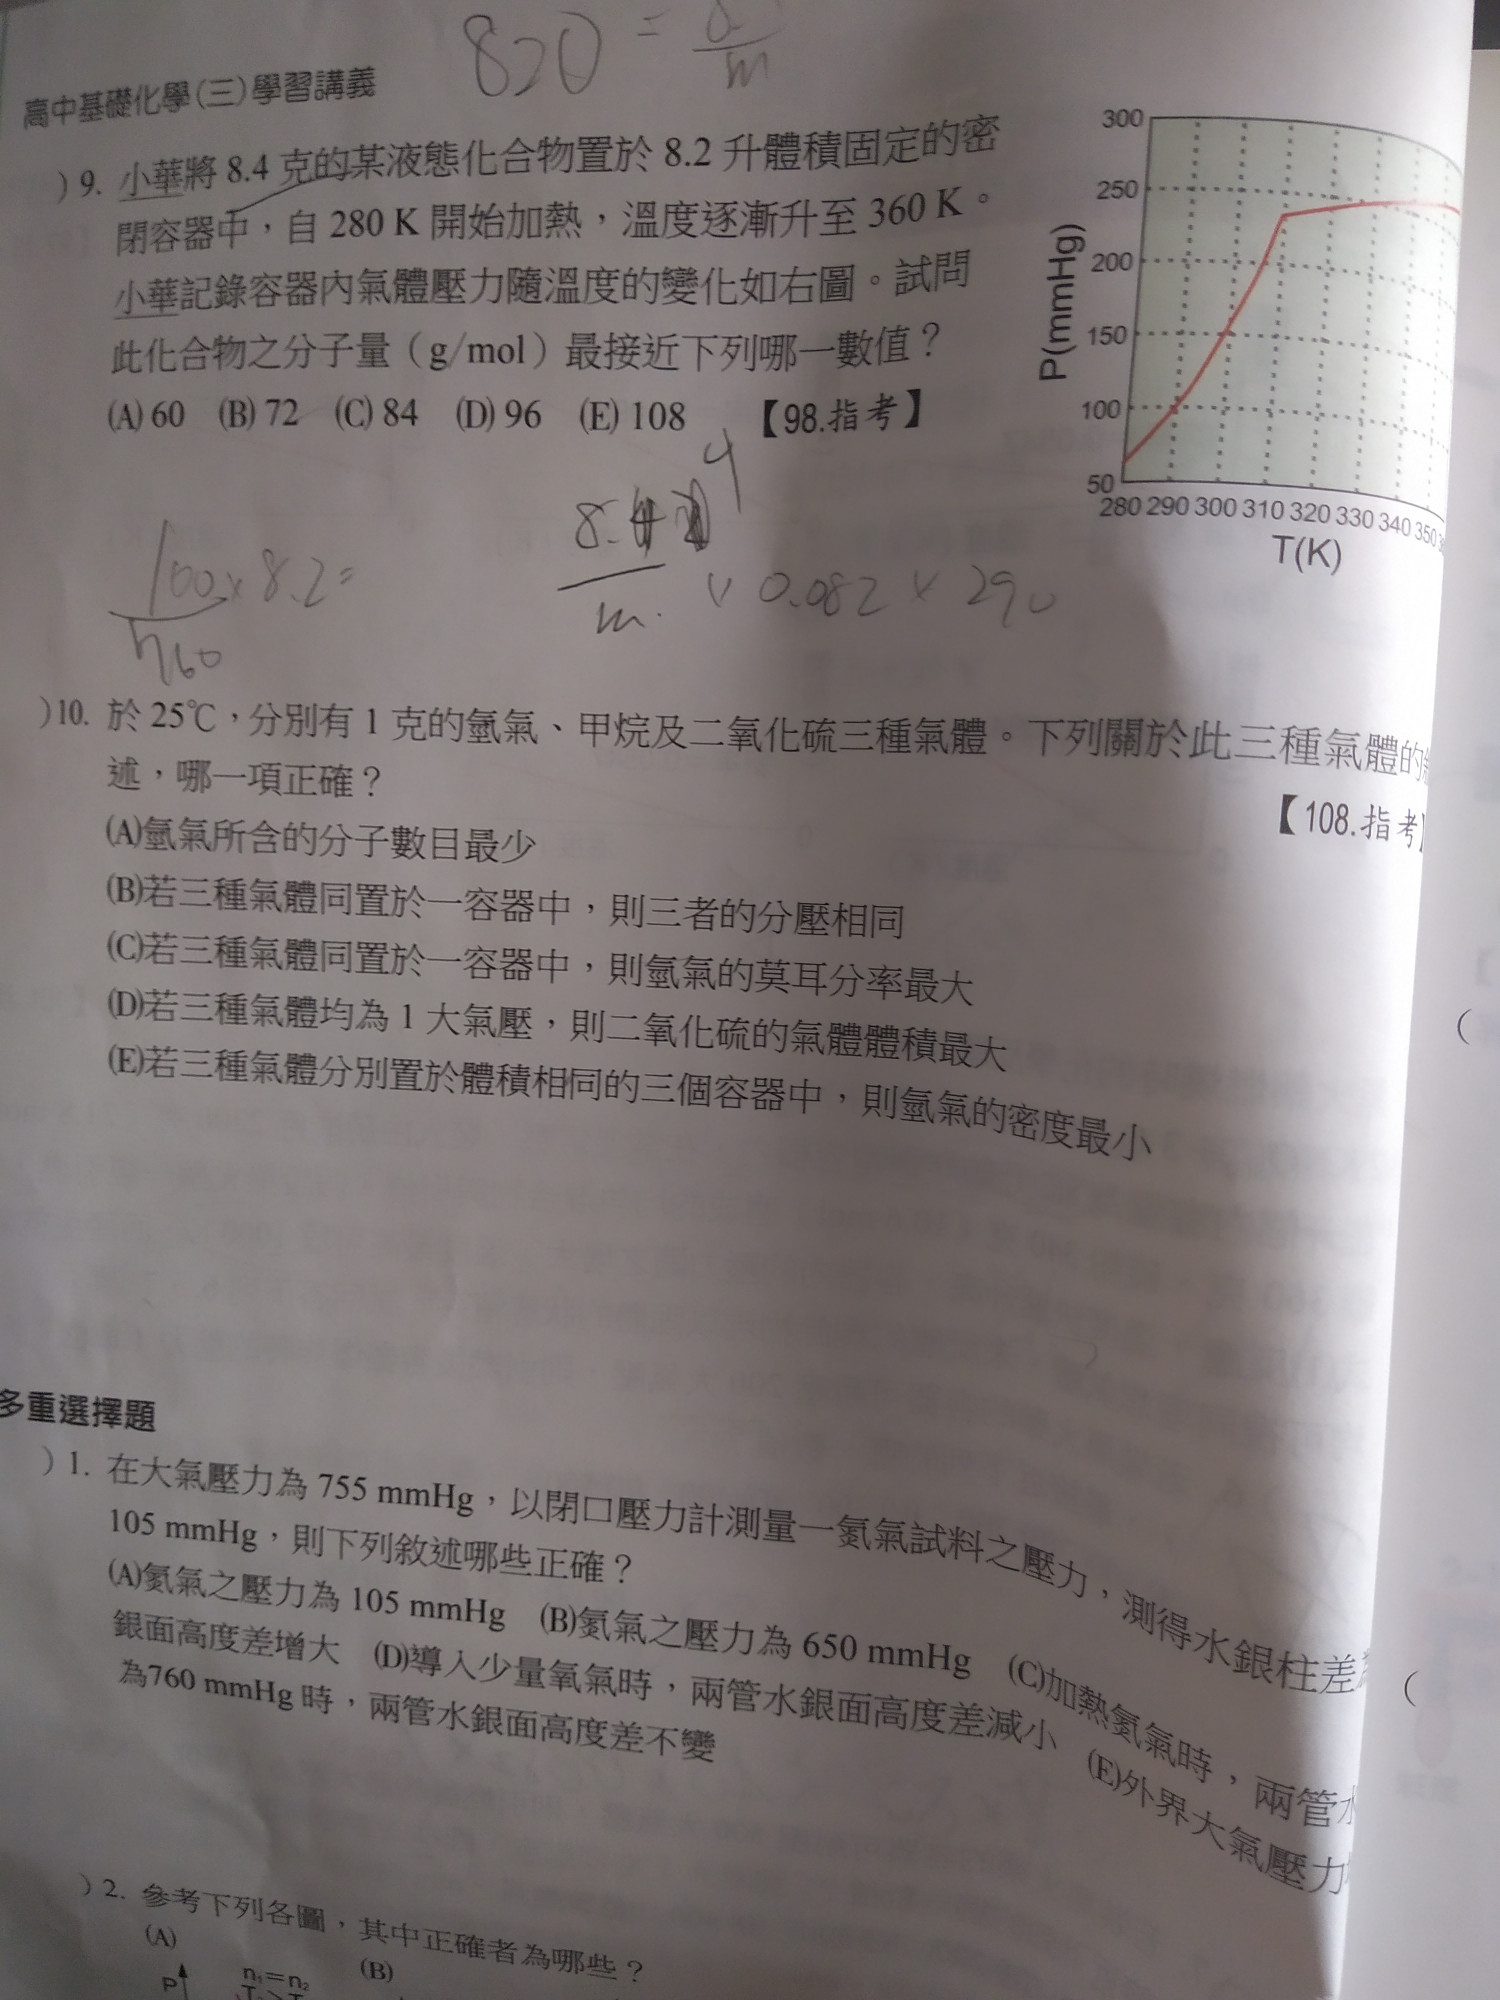 820 =
m
高中基礎化學(三)學習講義
)9. 小華將 8.4 克的某液態化合物置於 8.2 升體積固定的密
閉容器中，自 280 K 開始加熱，溫度逐漸升至 360 K。
小華記錄容器內氣體壓力隨溫度的變化如右圖。試問
此化合物之分子量（g/mol）最接近下列哪一數值？
(A) 60 (B) 72 (C) 84 (D) 96 (E) 108 【98.指考】
300
250
200
150
100
50
P(mmHg)
280 290 300 310 320 330 340 350
T(K)
100 × 8.2 =
760
8. 4
m. × 0.082 × 290
)10. 於 25℃，分別有 1 克的氫氣、甲烷及二氧化硫三種氣體。下列關於此三種氣體的
述，哪一項正確？
【108.指考】
(A)氫氣所含的分子數目最少
(B)若三種氣體同置於一容器中，則三者的分壓相同
(C)若三種氣體同置於一容器中，則氫氣的莫耳分率最大
(D)若三種氣體均為 1 大氣壓，則二氧化硫的氣體體積最大
(E)若三種氣體分別置於體積相同的三個容器中，則氫氣的密度最小
多重選擇題
)1. 在大氣壓力為 755 mmHg，以閉口壓力計測量一氮氣試料之壓力，測得水銀柱差
105 mmHg，則下列敘述哪些正確？
(A)氮氣之壓力為 105 mmHg (B)氮氣之壓力為 650 mmHg (C)加熱氮氣時，兩管水
銀面高度差增大 (D)導入少量氧氣時，兩管水銀面高度差減小 (E)外界大氣壓力
為760 mmHg 時，兩管水銀面高度差不變
)2. 參考下列各圖，其中正確者為哪些？
(A) (B)
P n₁=n₂